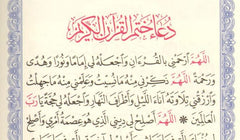 دُعَاءُ خَتْمِ الْقُرْآنِ الْكَرِيمِ
اللَّهُمَّ ارْحَمْنِي بِالْقُرْءَانِ وَاجْعَلْهُ لِي إِمَامًا وَنُورًا وَهُدًى
وَرَحْمَةً اللَّهُمَّ ذَكِّرْنِي مِنْهُ مَا نَسِيتُ وَعَلِّمْنِي مِنْهُ مَا جَهِلْتُ
وَارْزُقْنِي تِلَاوَتَهُ آنَاءَ اللَّيْلِ وَأَطْرَافَ النَّهَارِ وَاجْعَلْهُ لِي حُجَّةً يَا رَبَّ
الْعَالَمِينَ * اللَّهُمَّ أَصْلِحْ لِي دِينِي الَّذِي هُوَ عِصْمَةُ أَمْرِي وَأَصْلِحْ